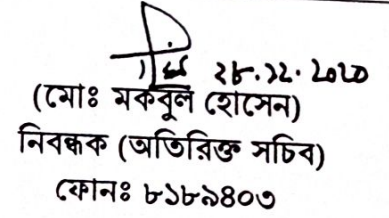 ২৮.১২.২০২০
(মোঃ মকবুল হোসেন)
নিবন্ধক (অতিরিক্ত সচিব)
ফোনঃ ৮১৮৯৪০৩